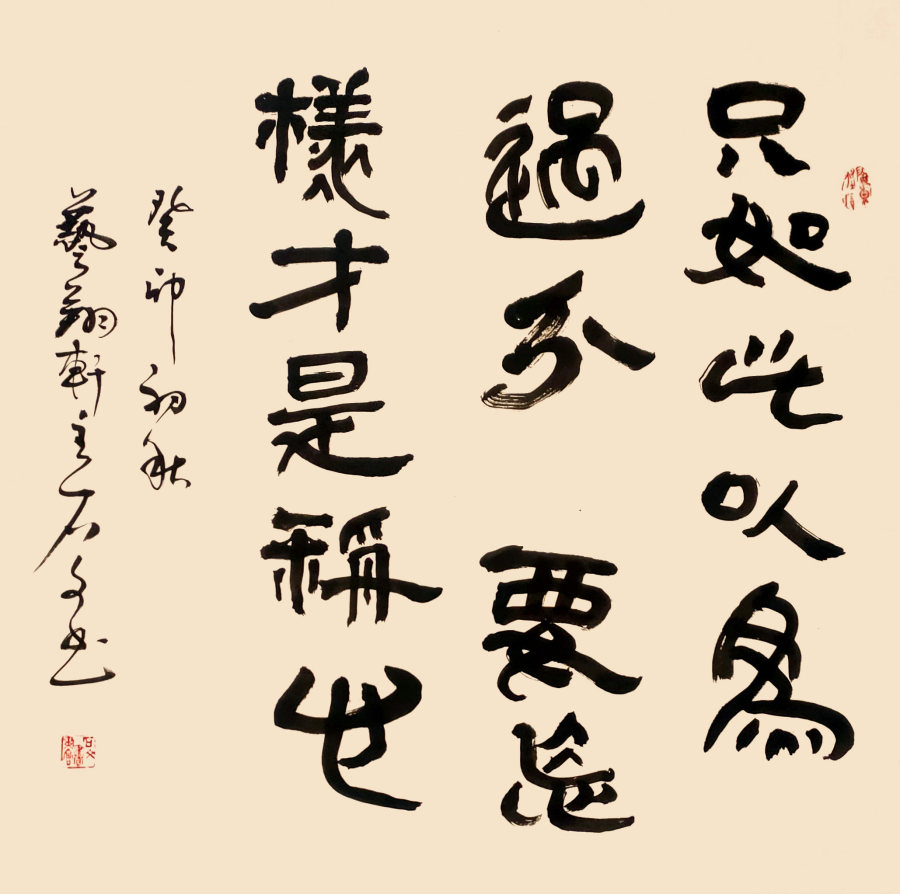 只如此以為
過分 要怎
樣才是稱心
癸卯初秋
藝翔軒主石文书